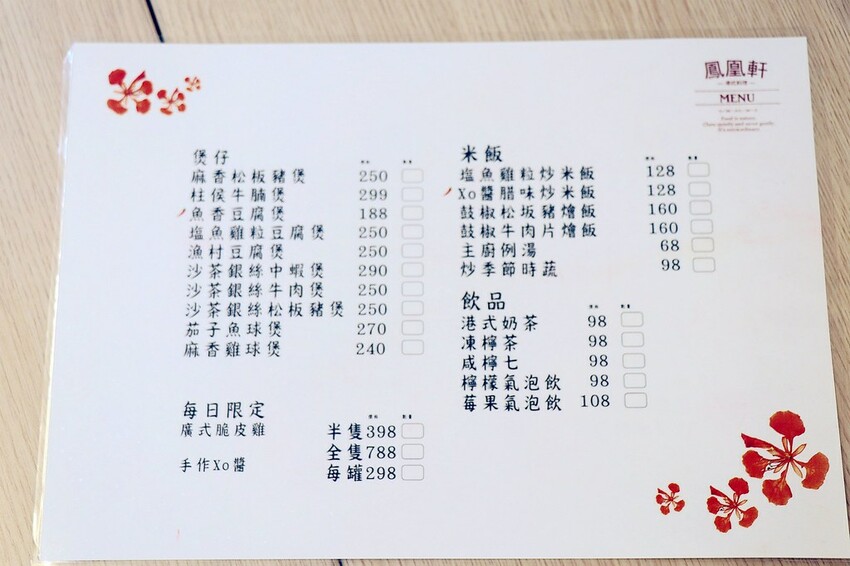 鳳凰軒
MENU
煲仔
麻香松板豬煲 250
柱侯牛腩煲 299
魚香豆腐煲 188
塩魚雞粒豆腐煲 250
漁村豆腐煲 250
沙茶銀絲中蝦煲 290
沙茶銀絲牛肉煲 250
沙茶銀絲松板豬煲 250
茄子魚球煲 270
麻香雞球煲 240
每日限定
廣式脆皮雞 半隻398
全隻788
手作Xo醬 每罐298
米飯
塩魚雞粒炒米飯 128
Xo醬腊味炒米飯 128
鼓椒松坂豬燴飯 160
鼓椒牛肉片燴飯 160
主廚例湯 68
炒季節時蔬 98
飲品
港式奶茶 98
凍檸茶 98
咸檸七 98
檸檬氣泡飲 98
莓果氣泡飲 108